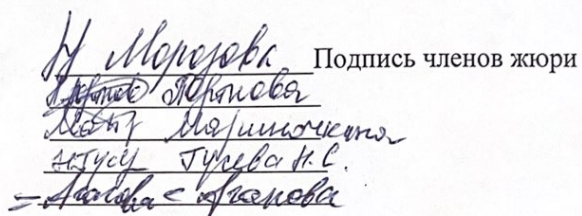 Морозова Подпись членов жюри
Портнова
Мариночкина
Гусева Н.С.
Агапова